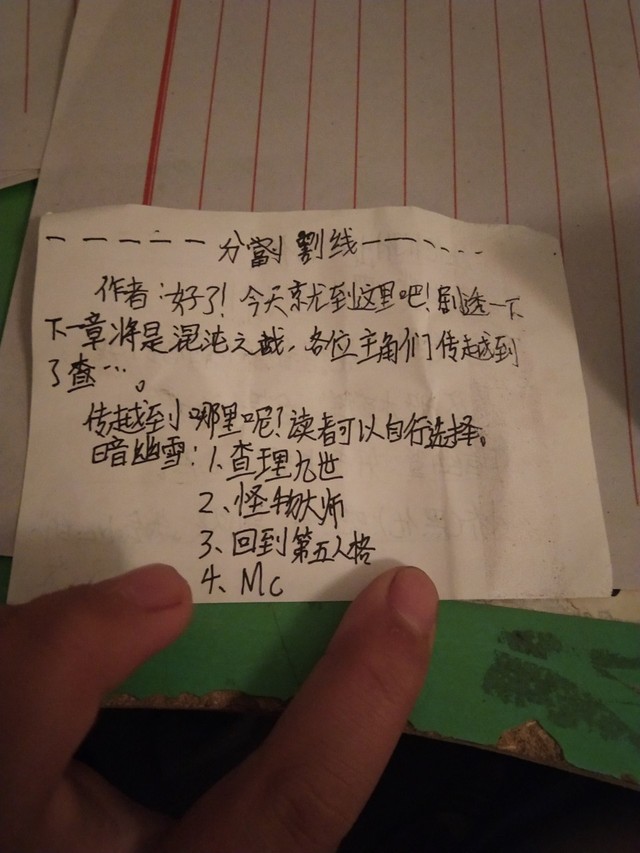 -----分割 割线--------
作者:好了!今天就到这里吧!剧透一下
下一章将是混沌之战,各位主角们传越到
了查…。
传越到哪里呢?读者可以自行选择。
暗幽雪:1.查理九世
2、怪物大师
3、回到第五人格
4、Mc